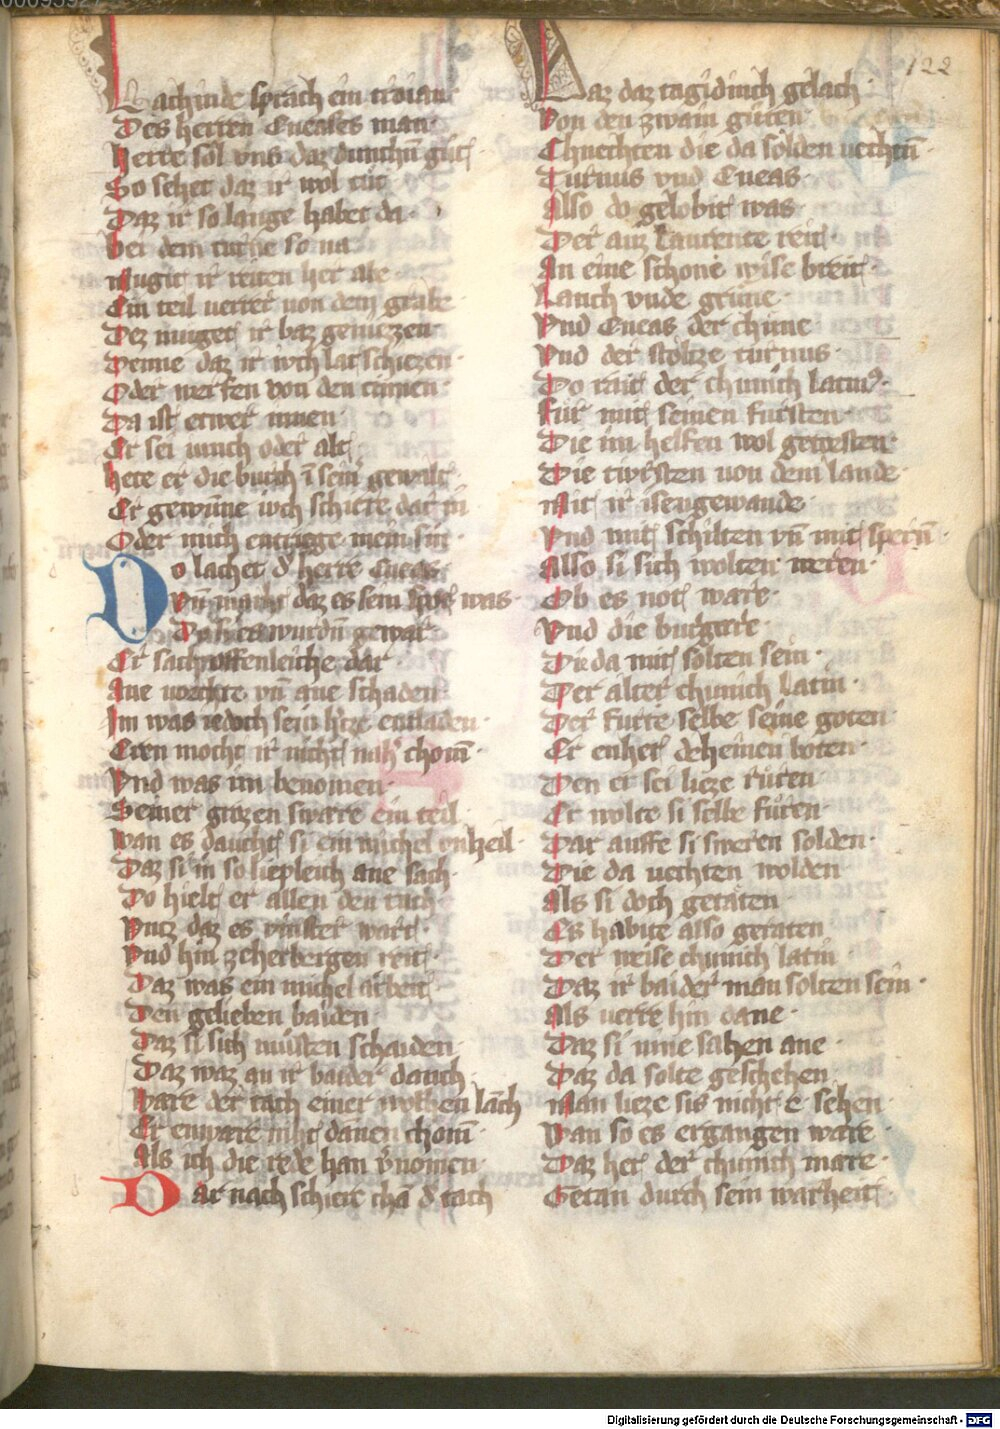 122
Lachinde sprach ein troian
Des herren Eneases man
Herre sol vns daz dunchen gůt
So sehet daz ir wol tůt
Daz ir so lange habet da
bei dem turne so na
mugit ir reiten her abe
Ein teil uerrer von dem grabe
Dez muget ir baz geniezzen
Denne daz ir iwch lat schiezen
Oder werfen von den cinnen
Da ist etwer innen
Er sei iunch oder alt
hete er die burch ī seiner gewalt
Er gewunne iwch schiere dar in
Oder mich entrigge mein sin
Do lachet d̓ herre Eneas
Vn̄ marht daz es sein spot was
Er sach offenleiche dar
Ane uorchte vn̄ ane schaden
Im was iedoch sein h̓ze entladen
Eren mocht ir nicht nah̓ chom̄
Vnd was im benomen
Seiner grozen sware ein teil
Wan es daucht si ein michel vnheil
Daz si in so liepleich ane sach
Do hielt er allen den tach
Vntz daz es vinster wart
Vnd hin zeherbergen reit
Daz was ein michel arbeit
Den gelieben baiden
Daz si sich můsten schaiden
Daz waz an ir baider danch
Ware der tach einer wochen lanch
Er enware niht dannen chom̄
Als ich die rede han v̓nomen
Dar nach schier cha d̓ tach
Daz daz tagidinch gelach
Von den zwain gůten
Chnechten die da solden uechten
Turnus vnd Eneas
Also do gelobit was
Der auz Laurente reit
An eine schone wise breit
Lanch vnde grůne
Vnd Eneas der chůne
Vnd der stolze turnus
Do rait der chunich latinus
Fur mit seinen fursten
Die im helfen wol getorsten
Die tiwristen von dem lande
Mit ir isengewande
Vnd mit schilten vn̄ mit spern̄
Also si sich wolten weren
Ob es not ware
Vnd die burgare
Die da mit solten sein
Der alter chunich latin
Der furte selbe seine goten
Er enhet deheinen boten
Den er sei lieze růren
Er wolte si selbe fůren
Dar auffe si sweren solden
Die da uechten wolden
Als si doch getaten
Es habite also geraten
Der weise chunich latin
Daz ir baider man solten sein
Als uerre hin dane
Daz si nine sahen ane
Daz da solte geschehen
Man lieze sis nicht e sehen
Wan so es ergangen ware
Daz het der chunich mare
Getan durch sein warheit
Digitalisierung gefördert durch die Deutsche Forschungsgemeinschaft - DFG